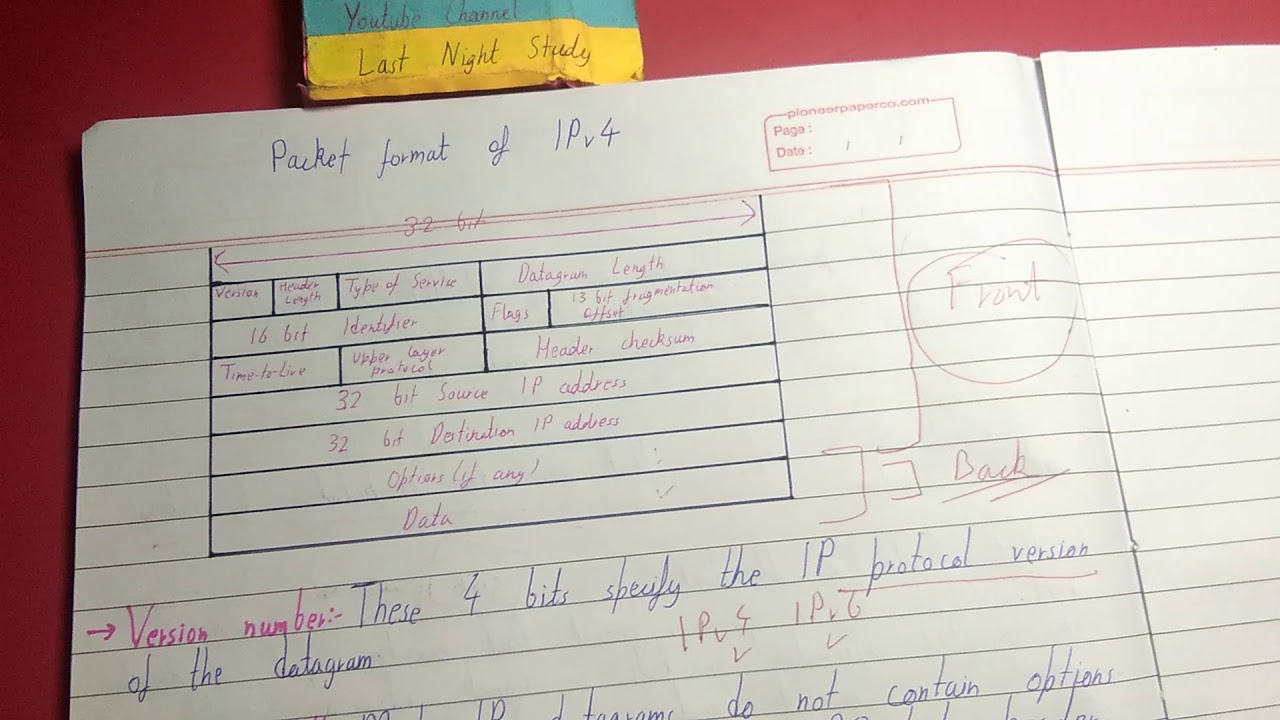 Youtube Channel
Last Night Study
Packet format of IPv4
pioneerpaperco.com
Page :
Date : / /
32 bit
Version Header Length Type of Service Datagram Length
16 bit Identifier Flags 13 bit fragmentation offset
Time-to-Live Upper layer protocol Header checksum
32 bit Source IP address
32 bit Destination IP address
Options (if any)
Data
Front
Back
→ Version number:- These 4 bits specify the IP protocol version
IPv4 IPv6
of the datagram.
IP datagrams do not contain options